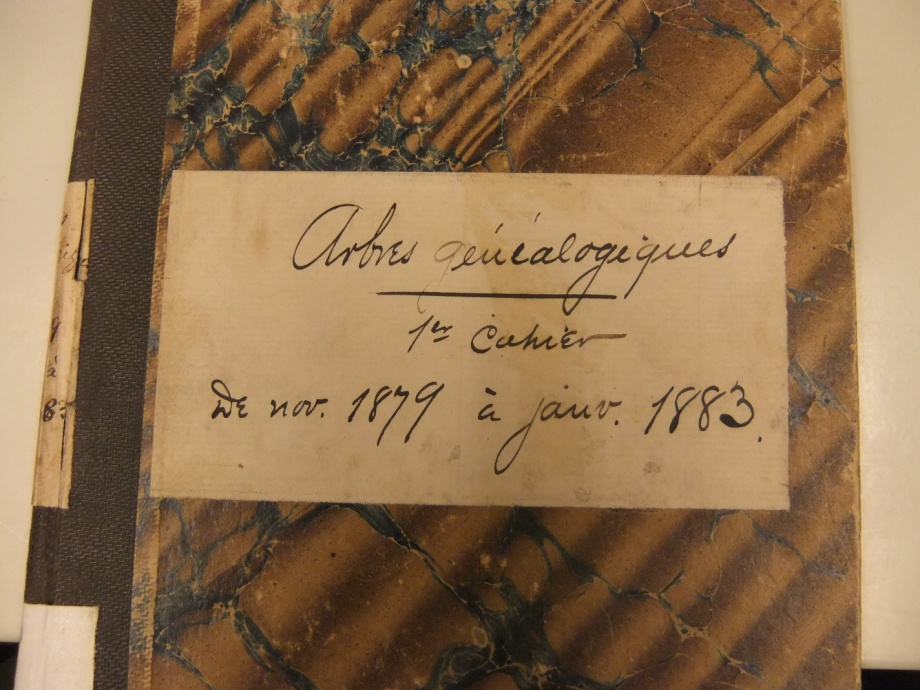 Arbres généalogiques
1er Cahier
De nov. 1879 à janv. 1883.
9
à
83